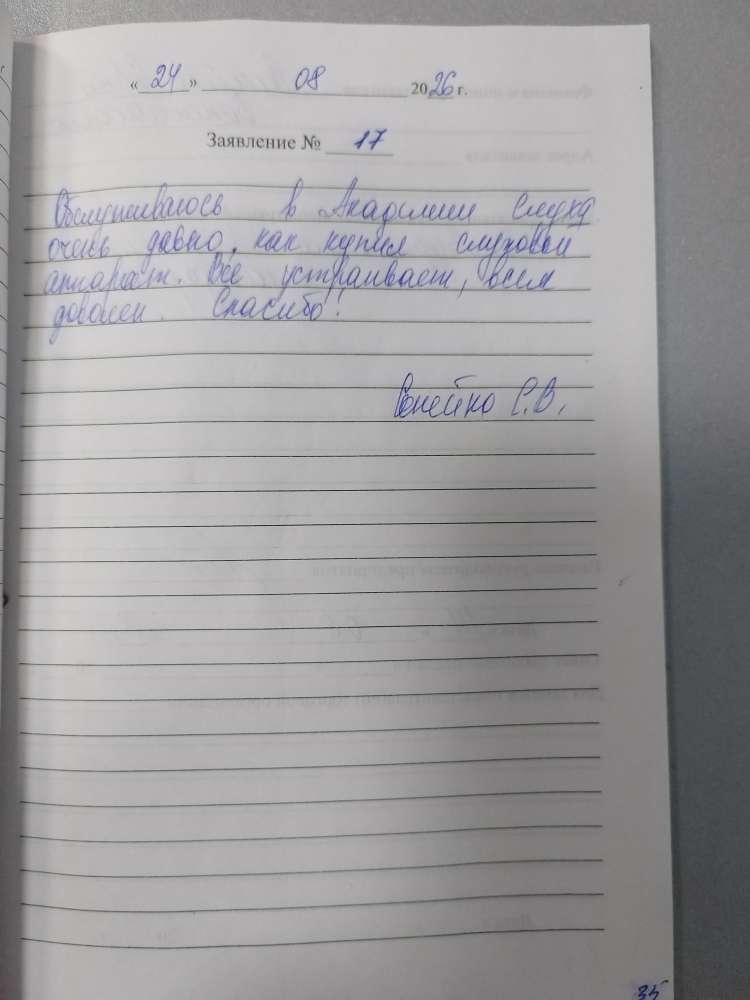 « 24 » 08 2026 г.
Заявление № 17
Обслуживаюсь в Академии слуха
очень давно, как купил слуховой
аппарат. Все устраивает, всем
доволен. Спасибо!
С.В.
35